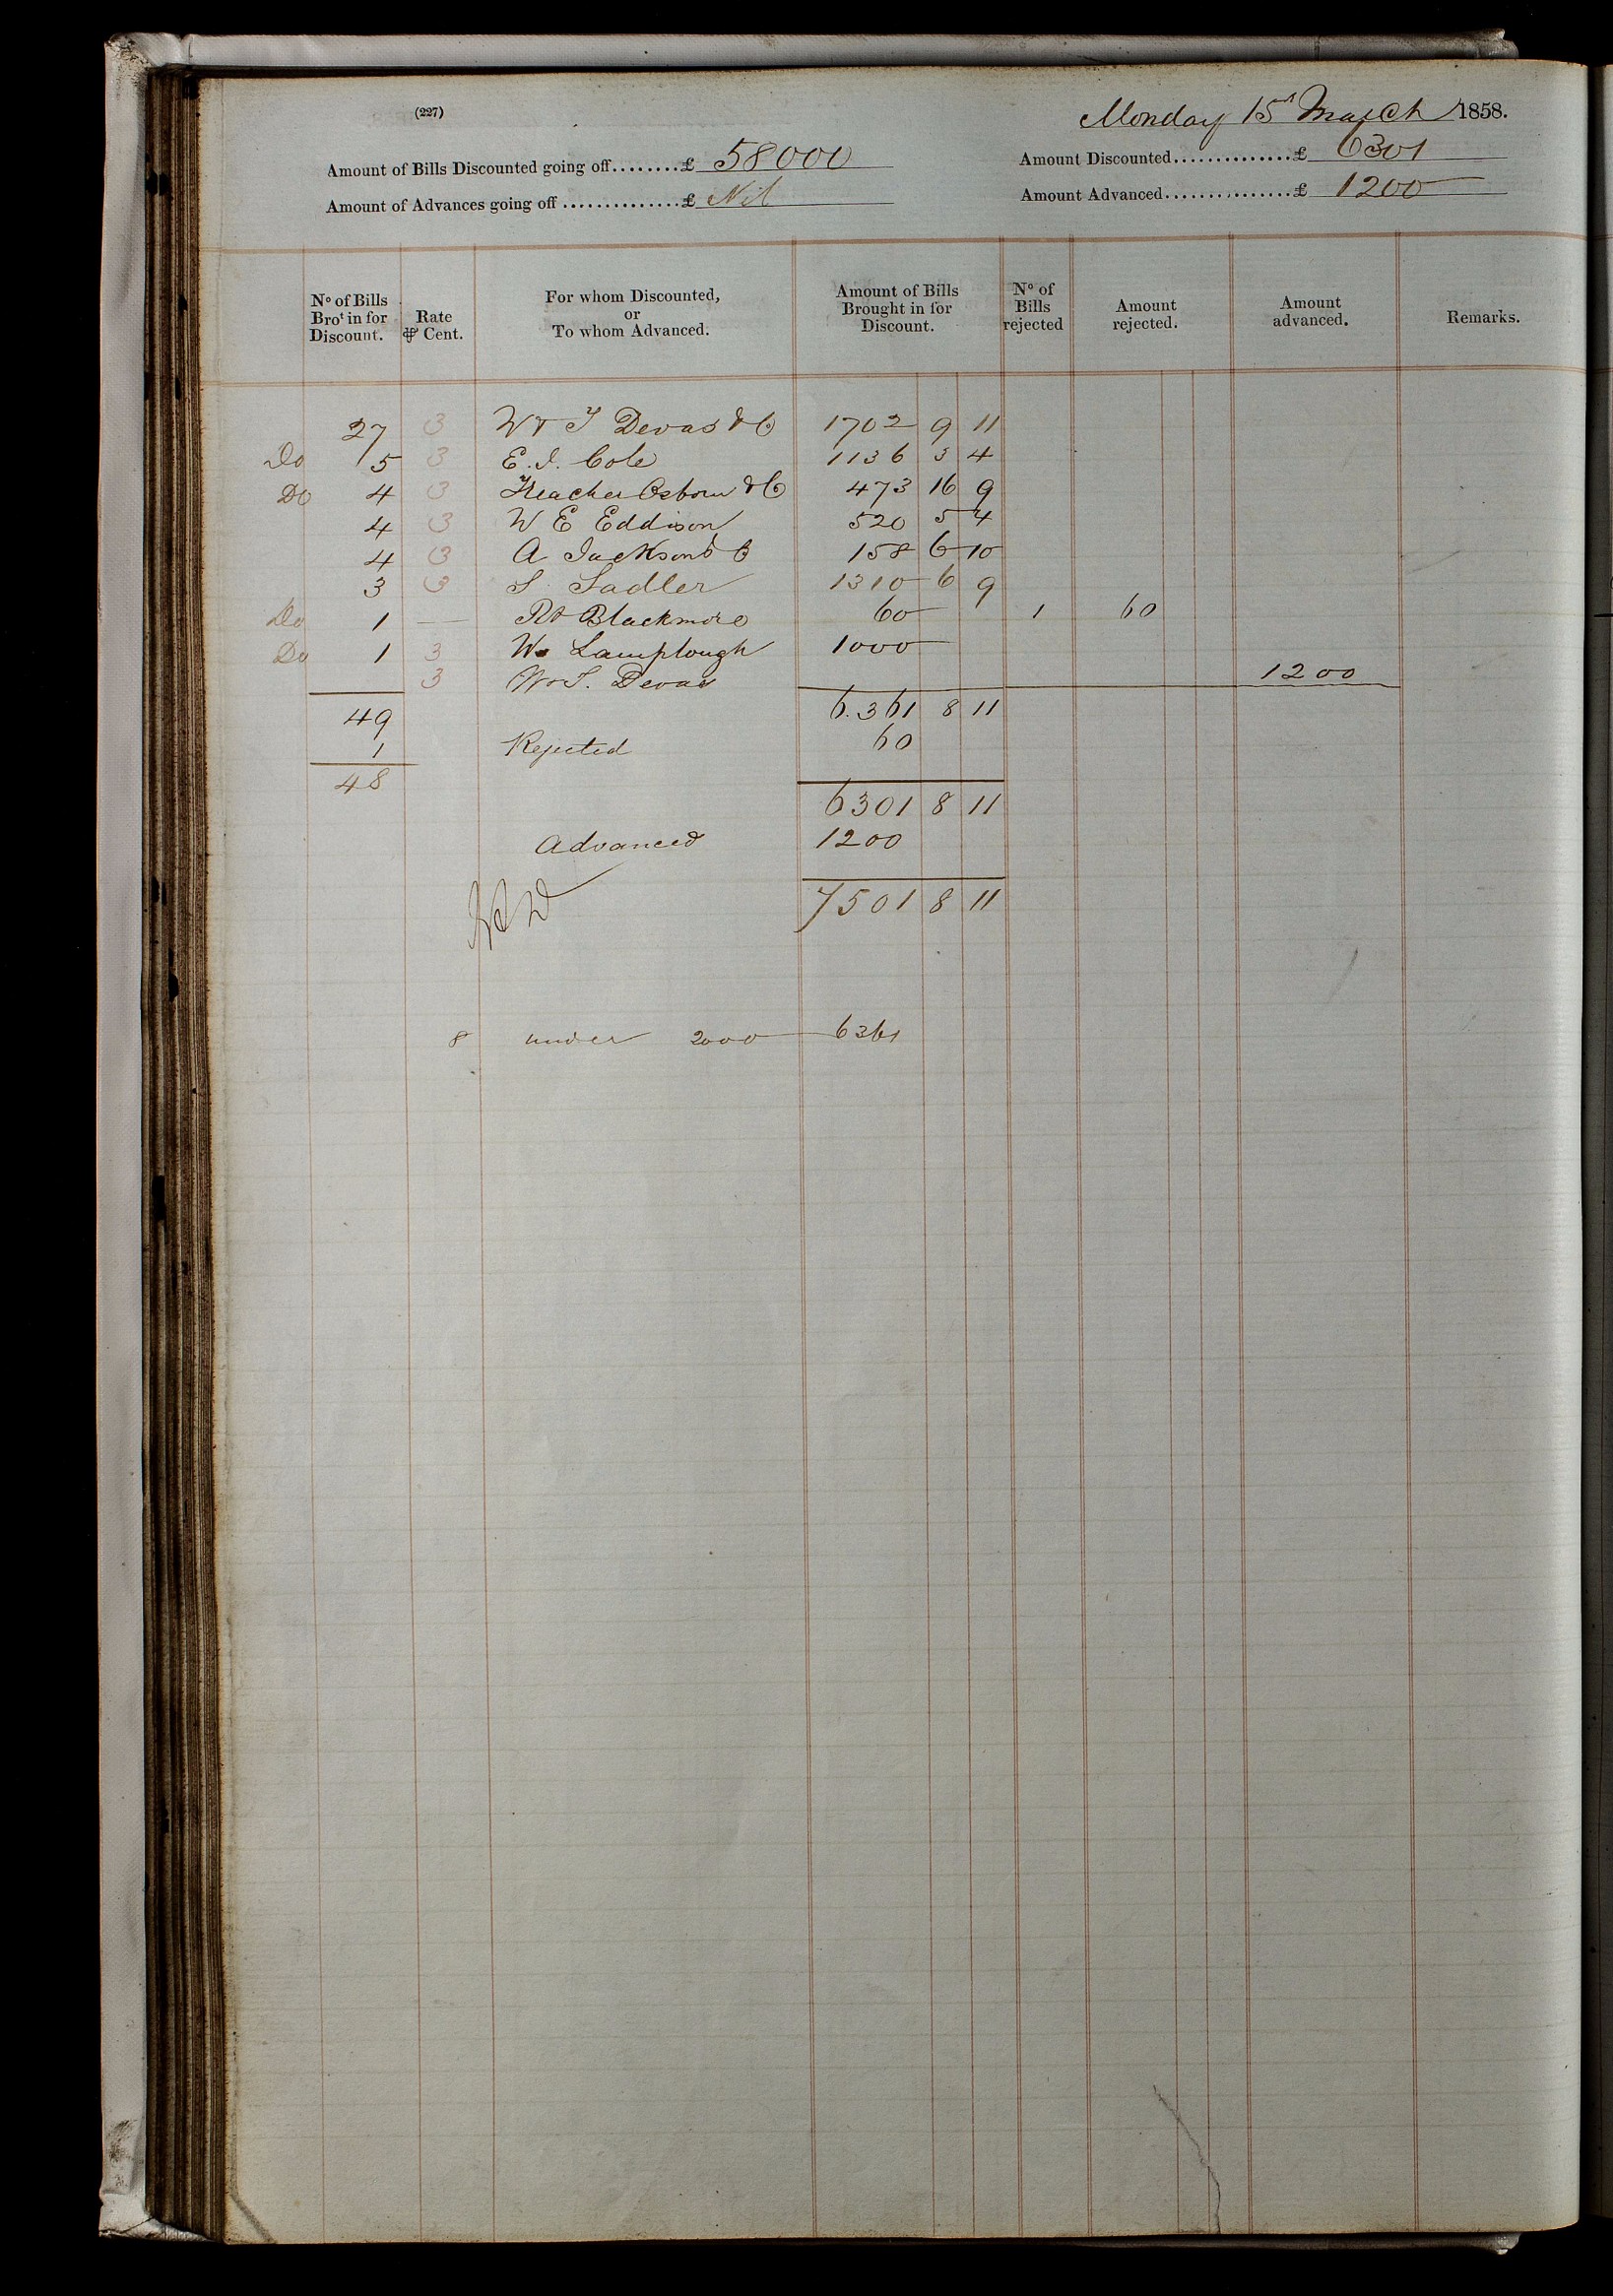 (227)
Monday 15th March 1858.
Amount of Bills Discounted going off........£ 58000
Amount Discounted..............£ 6301
Amount of Advances going off ...............£ Nil
Amount Advanced...............£ 1200
No of Bills Brot in for Discount. Rate ⅌ Cent. For whom Discounted, or To whom Advanced. Amount of Bills Brought in for Discount. No of Bills rejected Amount rejected. Amount advanced. Remarks.
27 3 W & T Devas & Co 1702 9 11
Do 5 3 E. I. Cole 1136 3 4
Do 4 3 Heacher Osborn & Co 473 16 9
4 3 W E Eddison 520 5 4
4 3 A Jackson & Co 158 6 10
3 3 S Sadler 1310 6 9
Do 1 — Rt Blackmore 60 1 60
Do 1 3 Wm Lamplough 1000
3 W & T. Devas 1200
49 6.361 8 11
1 Rejected 60
48
6301 8 11
Advanced 1200
7501 8 11
8 under 2000 — 6361